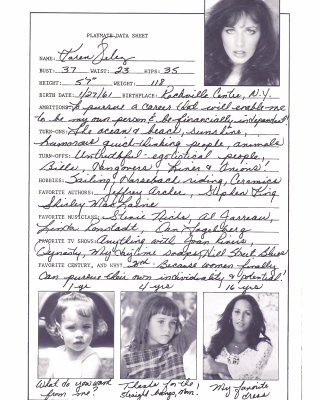 PLAYMATE DATA SHEET
NAME: Karen
BUST: 37 WAIST: 23 HIPS: 35
HEIGHT: 5'7" WEIGHT: 118
BIRTH DATE: 1/29/61 BIRTHPLACE: Rockville Centre, N.Y.
AMBITIONS: To pursue a career that will enable me
to be my own person & be financially independent!
TURN-ONS: The ocean & beach, sunshine,
humorous quick-thinking people, animals
TURN-OFFS: Untruthful - egotistical people,
Bills, Hangovers, Liver & Onions!
HOBBIES: Sailing, Horseback riding, Ceramics
FAVORITE AUTHORS: Jeffrey Archer, Stephen King
Shirley MacLaine
FAVORITE MUSICIANS: Stevie Nicks, Al Jarreau,
Linda Ronstadt, Dan Fogelberg
FAVORITE TV SHOWS: Anything with Joan Rivers
Dynasty, Why Daytime soaps, Hill Street Blues
FAVORITE CENTURY, AND WHY? Because women finally
Can pursue their own individuality & potential!
1 yr 4 yrs 16 yrs
What do you want from me?
Thanks for the straight bangs, Mom!
My favorite dress